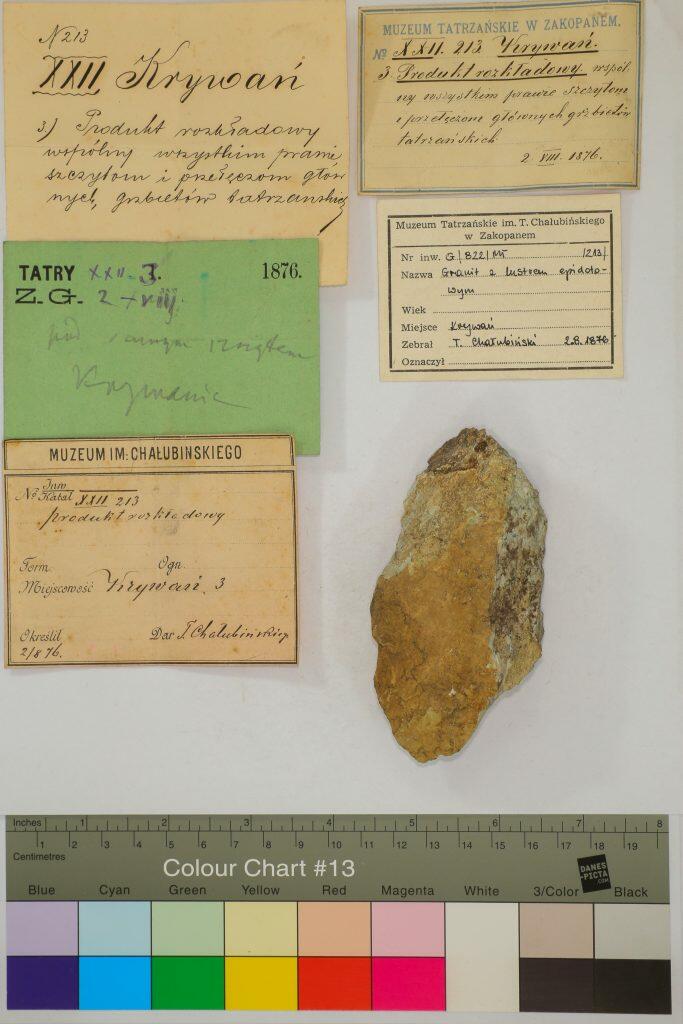 N 213
XXII Krywań
3) Produkt rozkładowy
wspólny wszystkim prawie
szczytom i przełęczom głów
nych grzbietów tatrzańskich
MUZEUM TATRZAŃSKIE W ZAKOPANEM.
No XXII. 213. Krywań.
3. Produkt rozkładowy wspól
ny wszystkim prawie szczytom
i przełęczom głównych grzbietów
tatrzańskich
2. VIII. 1876.
TATRY XXII. 3. 1876.
Z. G. 2 VIII.
pod samym szczytem
Krywania
Muzeum Tatrzańskie im. T. Chałubińskiego
w Zakopanem
Nr inw. G/822/MT /213/
Nazwa Granit z lustrem epidoto-
wym
Wiek
Miejsce Krywań
Zebrał T. Chałubiński 2.8.1876
Oznaczył
MUZEUM IM. CHAŁUBINSKIEGO
No Inw. Katal XXII 213
produkt rozkładowy
Form. Ogn.
Miejscowość Krywań. 3
Określił Dar T. Chałubińskiego
2/8 76.
Inches 1 2 3 4 5 6 7 8
1 2 3 4 5 6 7 8 9 10 11 12 13 14 15 16 17 18 19
Centimetres
Colour Chart #13
DANES
-PICTA
.COM
Blue Cyan Green Yellow Red Magenta White 3/Color Black